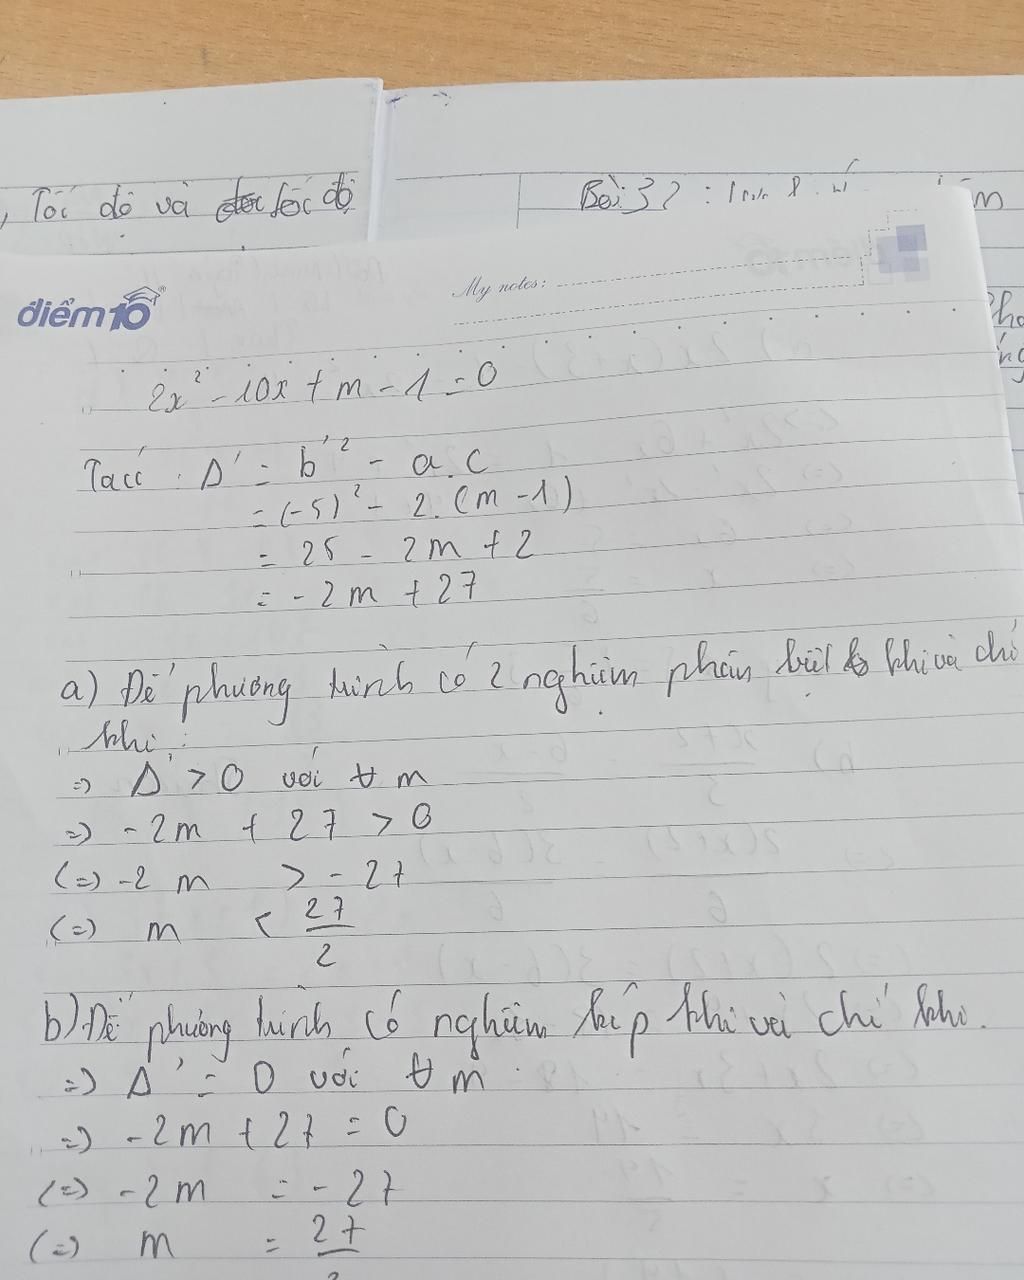 , Tốc độ và tốc độ
Bài 32 :
điểm10
My notes:
2x² - 10x + m - 1 = 0
Ta có : Δ' = b'² - a.c
= (-5)² - 2.(m - 1)
= 25 - 2m + 2
= - 2m + 27
a) Để phương trình có 2 nghiệm phân biệt khi và chỉ
khi :
=> Δ' > 0 với ∀ m
=> - 2m + 27 > 0
(=) -2 m > - 27
(=) m < 27/2
b) Để phương trình có nghiệm kép khi và chỉ khi.
=> Δ' = 0 với ∀ m
=> - 2m + 27 = 0
(=) - 2m = - 27
(=) m = 27/2